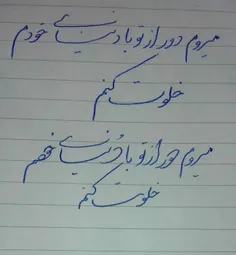 میروم دور از تو با دنیای خودم
خلوت کنم
میروم دور از تو با دنیای خودم
خلوت کنم